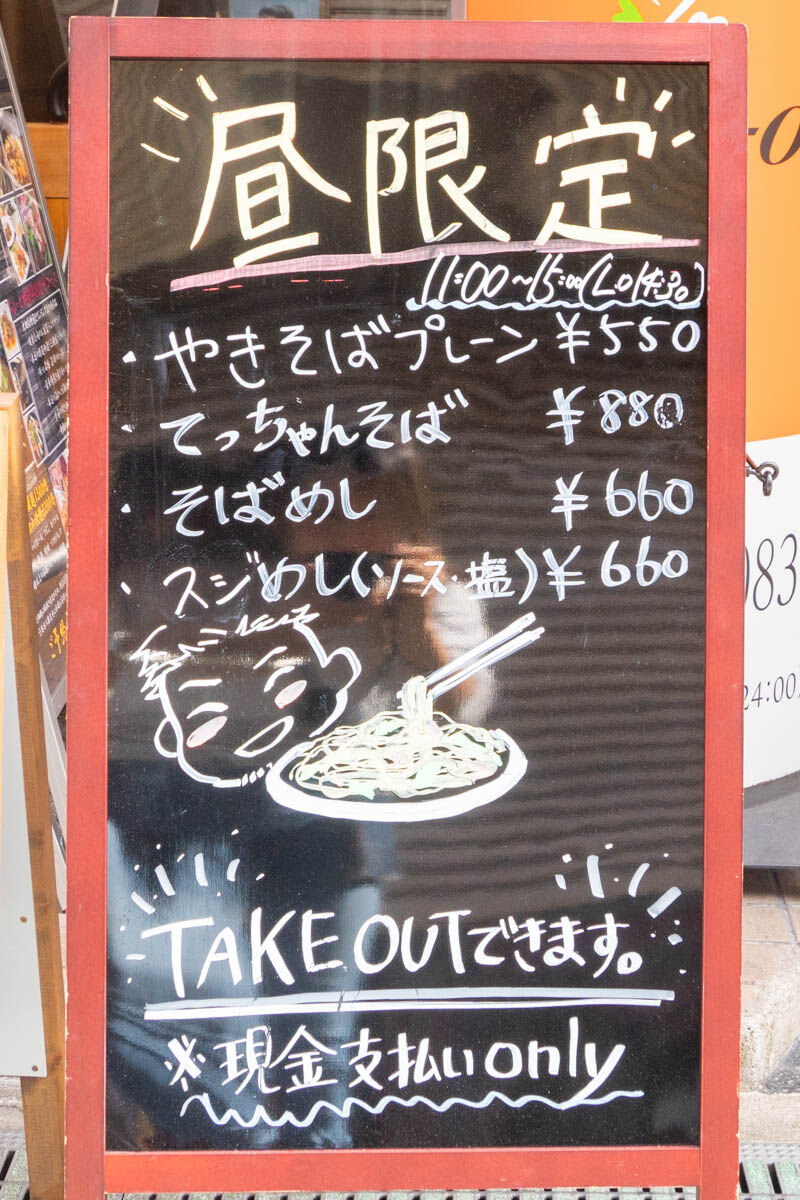 昼限定
11:00〜15:00(L.O14:30)
・やきそばプレーン ¥550
・てっちゃんそば ¥880
・そばめし ¥660
・スジめし(ソース・塩) ¥660
TAKE OUTできます。
※現金支払いonly
083
24:00